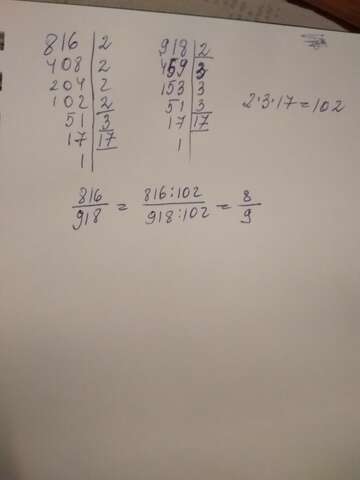 816 | 2
408 | 2
204 | 2
102 | 2
51 | 3
17 | 17
1
918 | 2
459 | 3
153 | 3
51 | 3
17 | 17
1
2·3·17=102
816/918 = 816:102/918:102 = 8/9